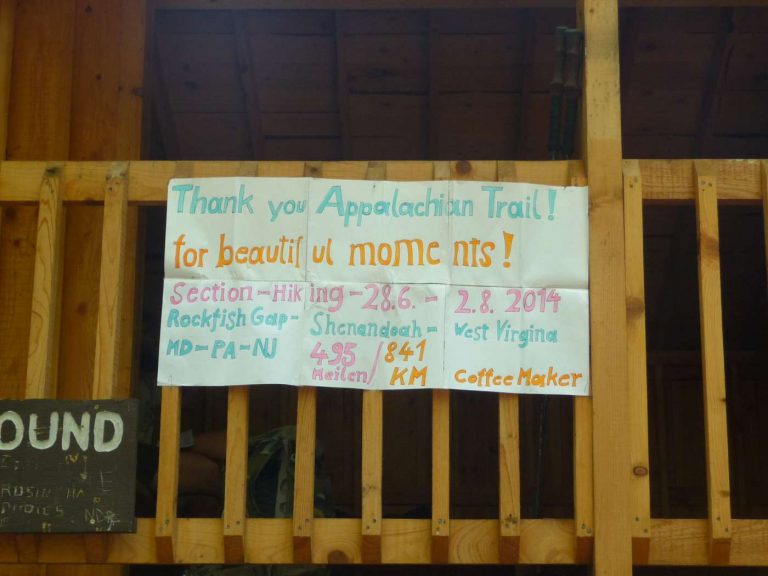 Thank you Appalachian Trail!
for beautiful moments!
Section-Hiking-28.6.- 2.8. 2014
Rockfish Gap- Shenandoah- West Virgina
MD-PA-NJ 495 Meilen / 841 KM Coffee Maker
OUND